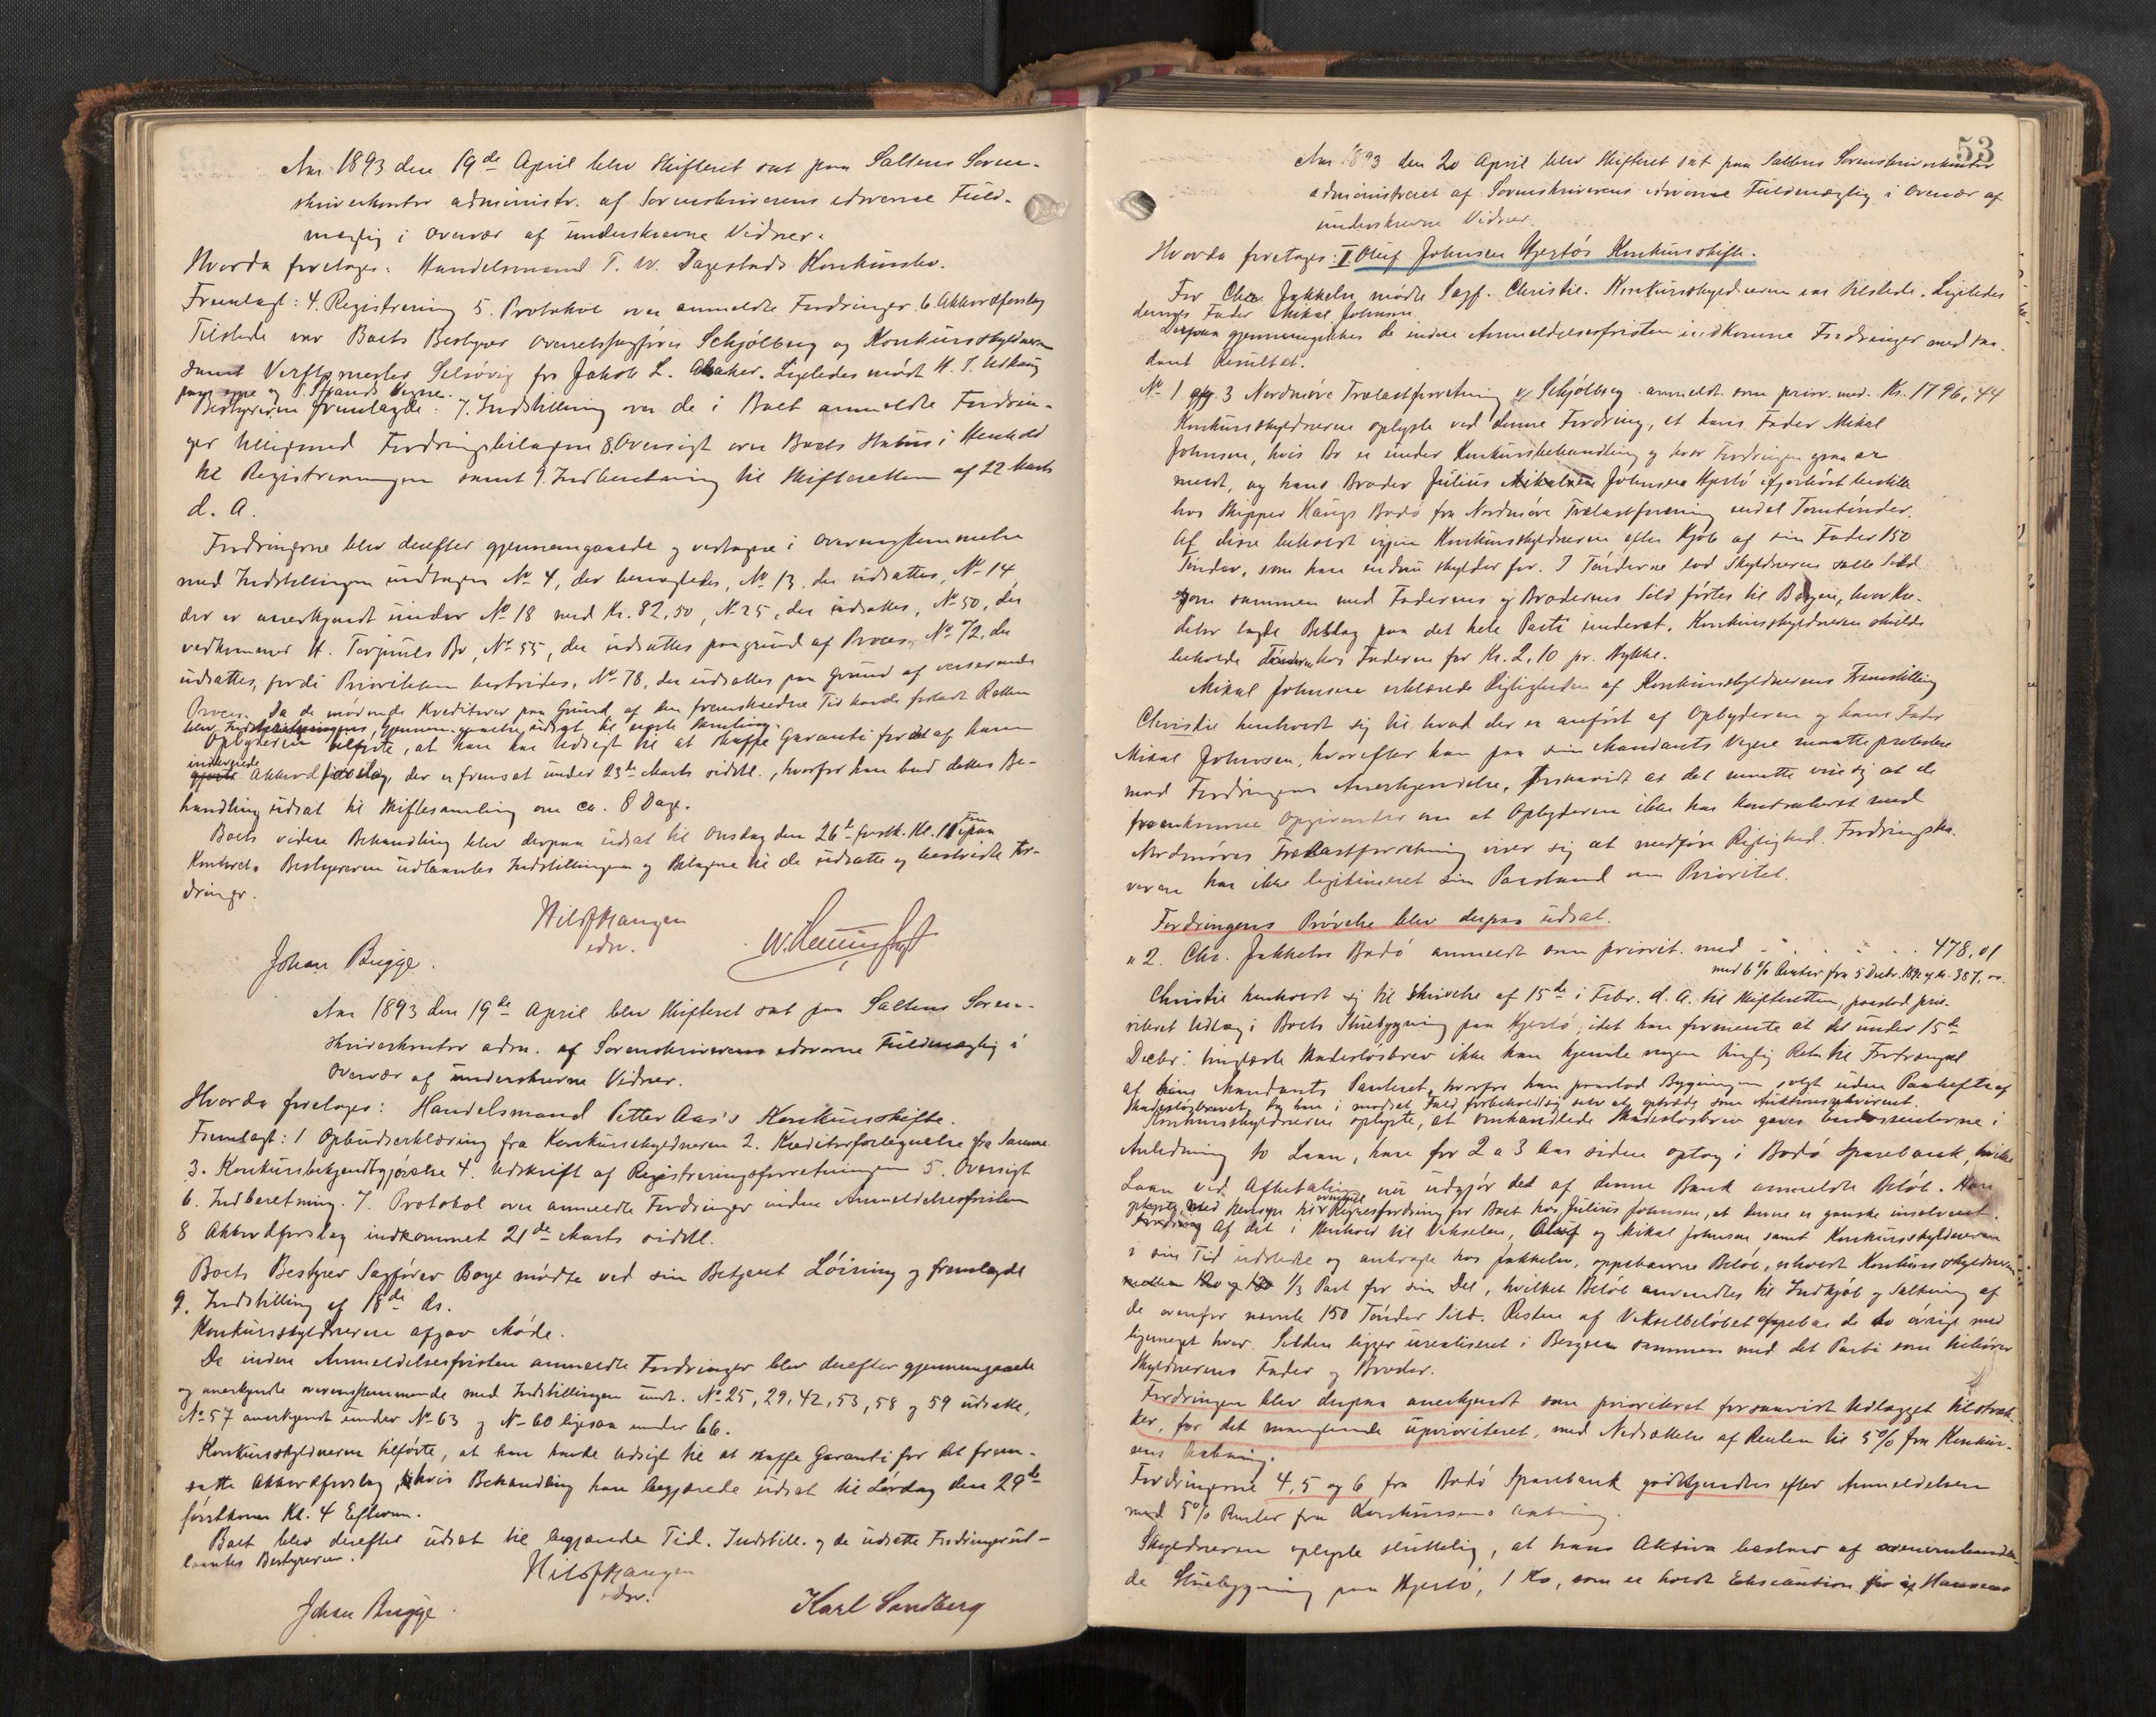 Aar 1893 den 19de April blev Skifteret sat paa Saltens Soren-
skriverkontor administr. af Sorenskriverens edsvorne Fuld-
mægtig i Overvær af underskrevne Vidner.
Hvorda foretoges: Handelsmand T. W. Dagestads Konkursbo.
Fremlagt: 4. Registrering 5. Protokol over anmeldte Fordringer 6. Akkordforslag
Tilstede var Boets Bestyrer Overretssagfører Schjølberg og Konkursskyldneren
samt Verftsmester Selsøvig for Jakob L. Likeledes mødt H. J.
paa egne og Strands Vegne.
Bestyreren fremlagde: 7. Indstilling over de i Boet anmeldte Fordrin-
ger tilligemed Fordringsbilagene 8. Oversigt over Boets Status i Henhold
til Registreringen samt 9. Indberetning til Skifteretten af 22 Marts
d. A.
Fordringerne blev derefter gjennemgaaede og vedtagne i Overensstemmelse
med Indstillingen undtagen No 4, der benegtedes, No 13, der udsattes, No 14
der er anerkjendt under No 18 med Kr. 82,50, No 25, der udsattes, No 50, der
vedkommer H. Bo, No 55, der udsattes paa grund af Proces, No 72, der
udsattes, fordi Prioriteten bestrides, No 78, der udsattes paa Grund af verserende
Proces. Da de mødende Kreditorer paa Grund af den fremskredne Tid havde forladt Retten
blev Gjennemgaaelse udsat til næste Samling.
Opbyderen tilførte, at han har Udsigt til at skaffe Garanti for det af ham
indgivede
Akkordforslag, der er fremsat under 23de Marts sidstl., hvorfor han bad dettes Be-
handling udsat til Skiftesamling om ca. 8 Dage.
Boets videre Behandling blev derpaa udsat til Onsdag den 26de førstk. Kl. 11 Fm paa
Kontoret. Bestyreren udlaantes Indstillingen og Bilagene til de udsatte og bestridte For-
dringer.
Nils Haugen
edsv.
Johan Brygge.
Aar 1893 den 19de April blev Skifteret sat paa Saltens Soren-
skriverkontor adm. af Sorenskriverens edsvorne Fuldmægtig i
Overvær af underskrevne Vidner.
Hvorda foretoges: Handelsmand Petter Aas's Konkursskifte.
Fremlagt: 1 Opbudserklæring fra Konkursskyldneren 2. Kreditorfortegnelse fra Samme
3. Konkursbekjendtgjørelse 4. Udskrift af Registreringsforretningen 5. Oversigt
6. Indberetning. 7. Protokol over anmeldte Fordringer inden Anmeldelsesfristen
8 Akkordforslag indkommet 21de Marts sidstl.
Boets Bestyrer Sagfører Boye mødte ved sin Betjent Löining og fremlagde
9. Indstilling af 18de ds.
Konkursskyldneren afgav Møde.
De inden Anmeldelsesfristen anmeldte Fordringer blev derefter gjennemgaaede
og anerkjendte overensstemmende med Indstillingen undt. No 25, 29, 42, 53, 58 og 59 udsatte,
No 57 anerkjendt under No 63 og No 60 ligesaa under 66.
Konkursskyldneren tilførte, at han havde Udsigt til at skaffe Garanti for det frem-
satte Akkordforslag, hvis Behandling han begjærede udsat til Lørdag den 29de
førstkom. Kl. 4 Efterm.
Boet blev derefter udsat til begjærede Tid. Indstill. og de udsatte Fordringer ud-
laantes Bestyreren.
Nils Haugen
edsv.
Johan Brygge.
Karl Sandberg
53
Aar 1893 den 20 April blev Skifteret sat paa Saltens Sorenskriverkontor
administreret af Sorenskriverens edsvorne Fuldmægtig i Overvær af
underskrevne Vidner.
Hvorda foretoges: II. Oluf Johnsen Hjertøs Konkursskifte.
For Chr. Jakhelln mødte Sagf. Christie. Konkursskyldneren var tilstede. Ligeledes
dennes Fader Mikal Johnsen.
Derpaa gjennemgikkes de inden Anmeldelsesfristen indkomne Fordringer med saa-
dant Resultat.
No 1 og 3 Nordmøre Trælastforretning v/ Schjølberg anmeldt som prior. med Kr. 1796,44
Konkursskyldneren oplyste ved denne Fordring, at hans Fader Mikal
Johnsen, hvis Bo er under Konkursbehandling og hvor Fordringen ogsaa er
meldt, og hans Broder Julius Johnsen Hjertø ifjorhøst bestilte
hos Skipper Haugs Bodø fra Nordmøre Trælastforening endel Tomtønder.
Af disse beholdt igjen Konkursskyldneren efter Kjøb af sin Fader 150
Tønder, som han endnu skylder for. I Tønderne lod Skyldneren salte Sild
som sammen med Faderens og Broderens Sild førtes til Bergen, hvor Kre-
ditor lagde Beslag paa det hele Parti inderst. Konkursskyldneren skulde
beholde Tønderne hos Faderen for Kr. 2,10 pr. Stykke.
Mikal Johnsen erklærede Rigtigheden af Konkursskyldnerens Fremstilling
Christie henholdt sig til hvad der er anført af Opbyderen og hans Fader
Mikal Johnsen, hvorefter han paa sin Mandants Vegne maatte protestere
mod Fordringens Anerkjendelse, forsaavidt at det maatte vise sig at de
fremkomne Opgivender om at Opbyderen ikke har kontraheret med
Nordmøres Trælastforretning viser sig at medføre Rigtighed. Fordringsha-
veren har ikke legitimeret sin Paastand om Prioritet.
Fordringens Prøvelse blev derpaa udsat.
" 2. Chr. Jakhelln Bodø anmeldt som priorit. med 478,01
med 6% Renter fra 5 Decbr. 1892 af Kr. 387,00
Christie henholdt sig til Skrivelse af 15de i Febr. d. A. til Skifteretten, paastod prio-
riteret Udlæg i Boets Stuebygning paa Hjertø, idet han formente at det under 15de
Decbr. tinglæste Skadesløsbrev ikke kan hjemle nogen tinglig Ret til Fortrængsel
af hans Mandants Panteret, hvorfor han paastod Bygningen solgt uden Panhefte af
Skadesløsbrevet, og han i modsat Fald forbeholdt sig selv at optræde som Auktionsrekvirent.
Konkursskyldneren oplyste, at omhandlede Skadesløsbrev gaves Endossenterne i
Anledning to Laan, han for 2 a 3 Aar siden optog i Bodø Sparebank, hvilke
Laan ved Afbetaling nu udgjør det af denne Bank anmeldte Beløb. Han
oplyste med Hensyn til Regresfordring for Boet hos Julius Johnsen, at denne er ganske insolvent.
Af det i Henhold til Vekselen, Oluf og Mikal Johnsen samt Konkursskyldneren
i sin Tid udstedte og antoge hos Jakhelln, oppebaarne Beløb, erholdt Konkursskyldneren
1/3 Part for sin Del, hvilket Beløb anvendtes til Indkjøb og Saltning af
de ovenfor nævnte 150 Tønder Sild. Resten af Vekselbeløbet oppebar de to øvrige med
ligemeget hver. Silden ligger urealiseret i Bergen sammen med det Parti som tilhører
Skyldnerens Fader og Broder.
Fordringen blev derpaa anerkjendt som prioriteret forsaavidt Udlægget tilstræk-
ker, for det manglende uprioriteret, med Nedsættelse af Renten til 5% fra Konkur-
sens Aabning.
Fordringerne 4, 5 og 6 fra Bodø Sparebank godkjendtes efter Anmeldelsen
med 5% Renter fra Konkursens Aabning.
Skyldneren oplyste sluttelig, at hans Aktiva bestaar af ovenomhandle-
de Stuebygning paa Hjertø, 1 Ko, som er holdt Eksekution for af Hansens